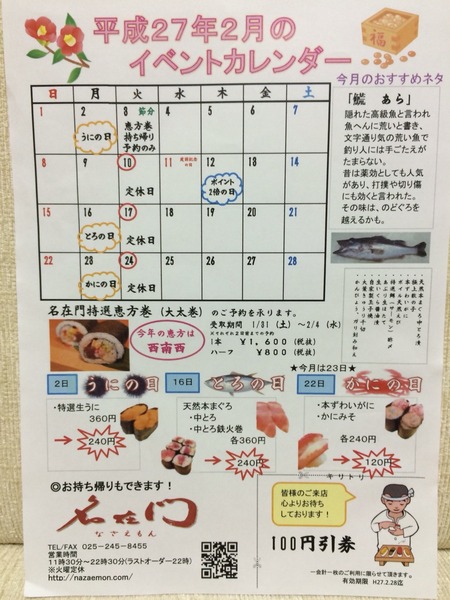 平成27年2月の
イベントカレンダー
福
日 月 火 水 木 金 土
1 2 3 節分 4 5 6 7
うにの日
恵方巻
持ち帰り
予約のみ
8 9 10 11 12 13 14
定休日
ポイント
2倍の日
15 16 17 18 19 20 21
とろの日
定休日
22 23 24 25 26 27 28
かにの日
定休日
今月のおすすめネタ
「鱈 あら」
隠れた高級魚と言われ
魚へんに荒いと書き、
文字通り気の荒い魚で
釣り人には手ごたえが
たまらない。
昔は薬効としても人気
があり、打撲や切り傷
にも効くと言われた。
その味は、のどぐろを
越えるかも。
名在門特選恵方巻(大太巻)のご予約を承ります。
今年の恵方は
西南西
受取期間 1/31(土)~2/4(水)
1本 ¥1,600(税抜)
ハーフ ¥800(税抜)
★今月は23日★
2日 うにの日
・特選生うに
360円
240円
16日 とろの日
天然本まぐろ
・中とろ
・中とろ鉄火巻
各360円
240円
22日 かにの日
・本ずわいがに
・かにみそ
各240円
120円
キリトリ
◎お持ち帰りもできます!
名在門
なざえもん
TEL/FAX 025-245-8455
営業時間
11時30分~22時30分(ラストオーダー22時)
※火曜定休
http://nazaemon.com/
皆様のご来店
心よりお待ち
しております!
100円引券
一会計一枚のご利用に限らせて頂きます。
有効期限 H27.2.28迄